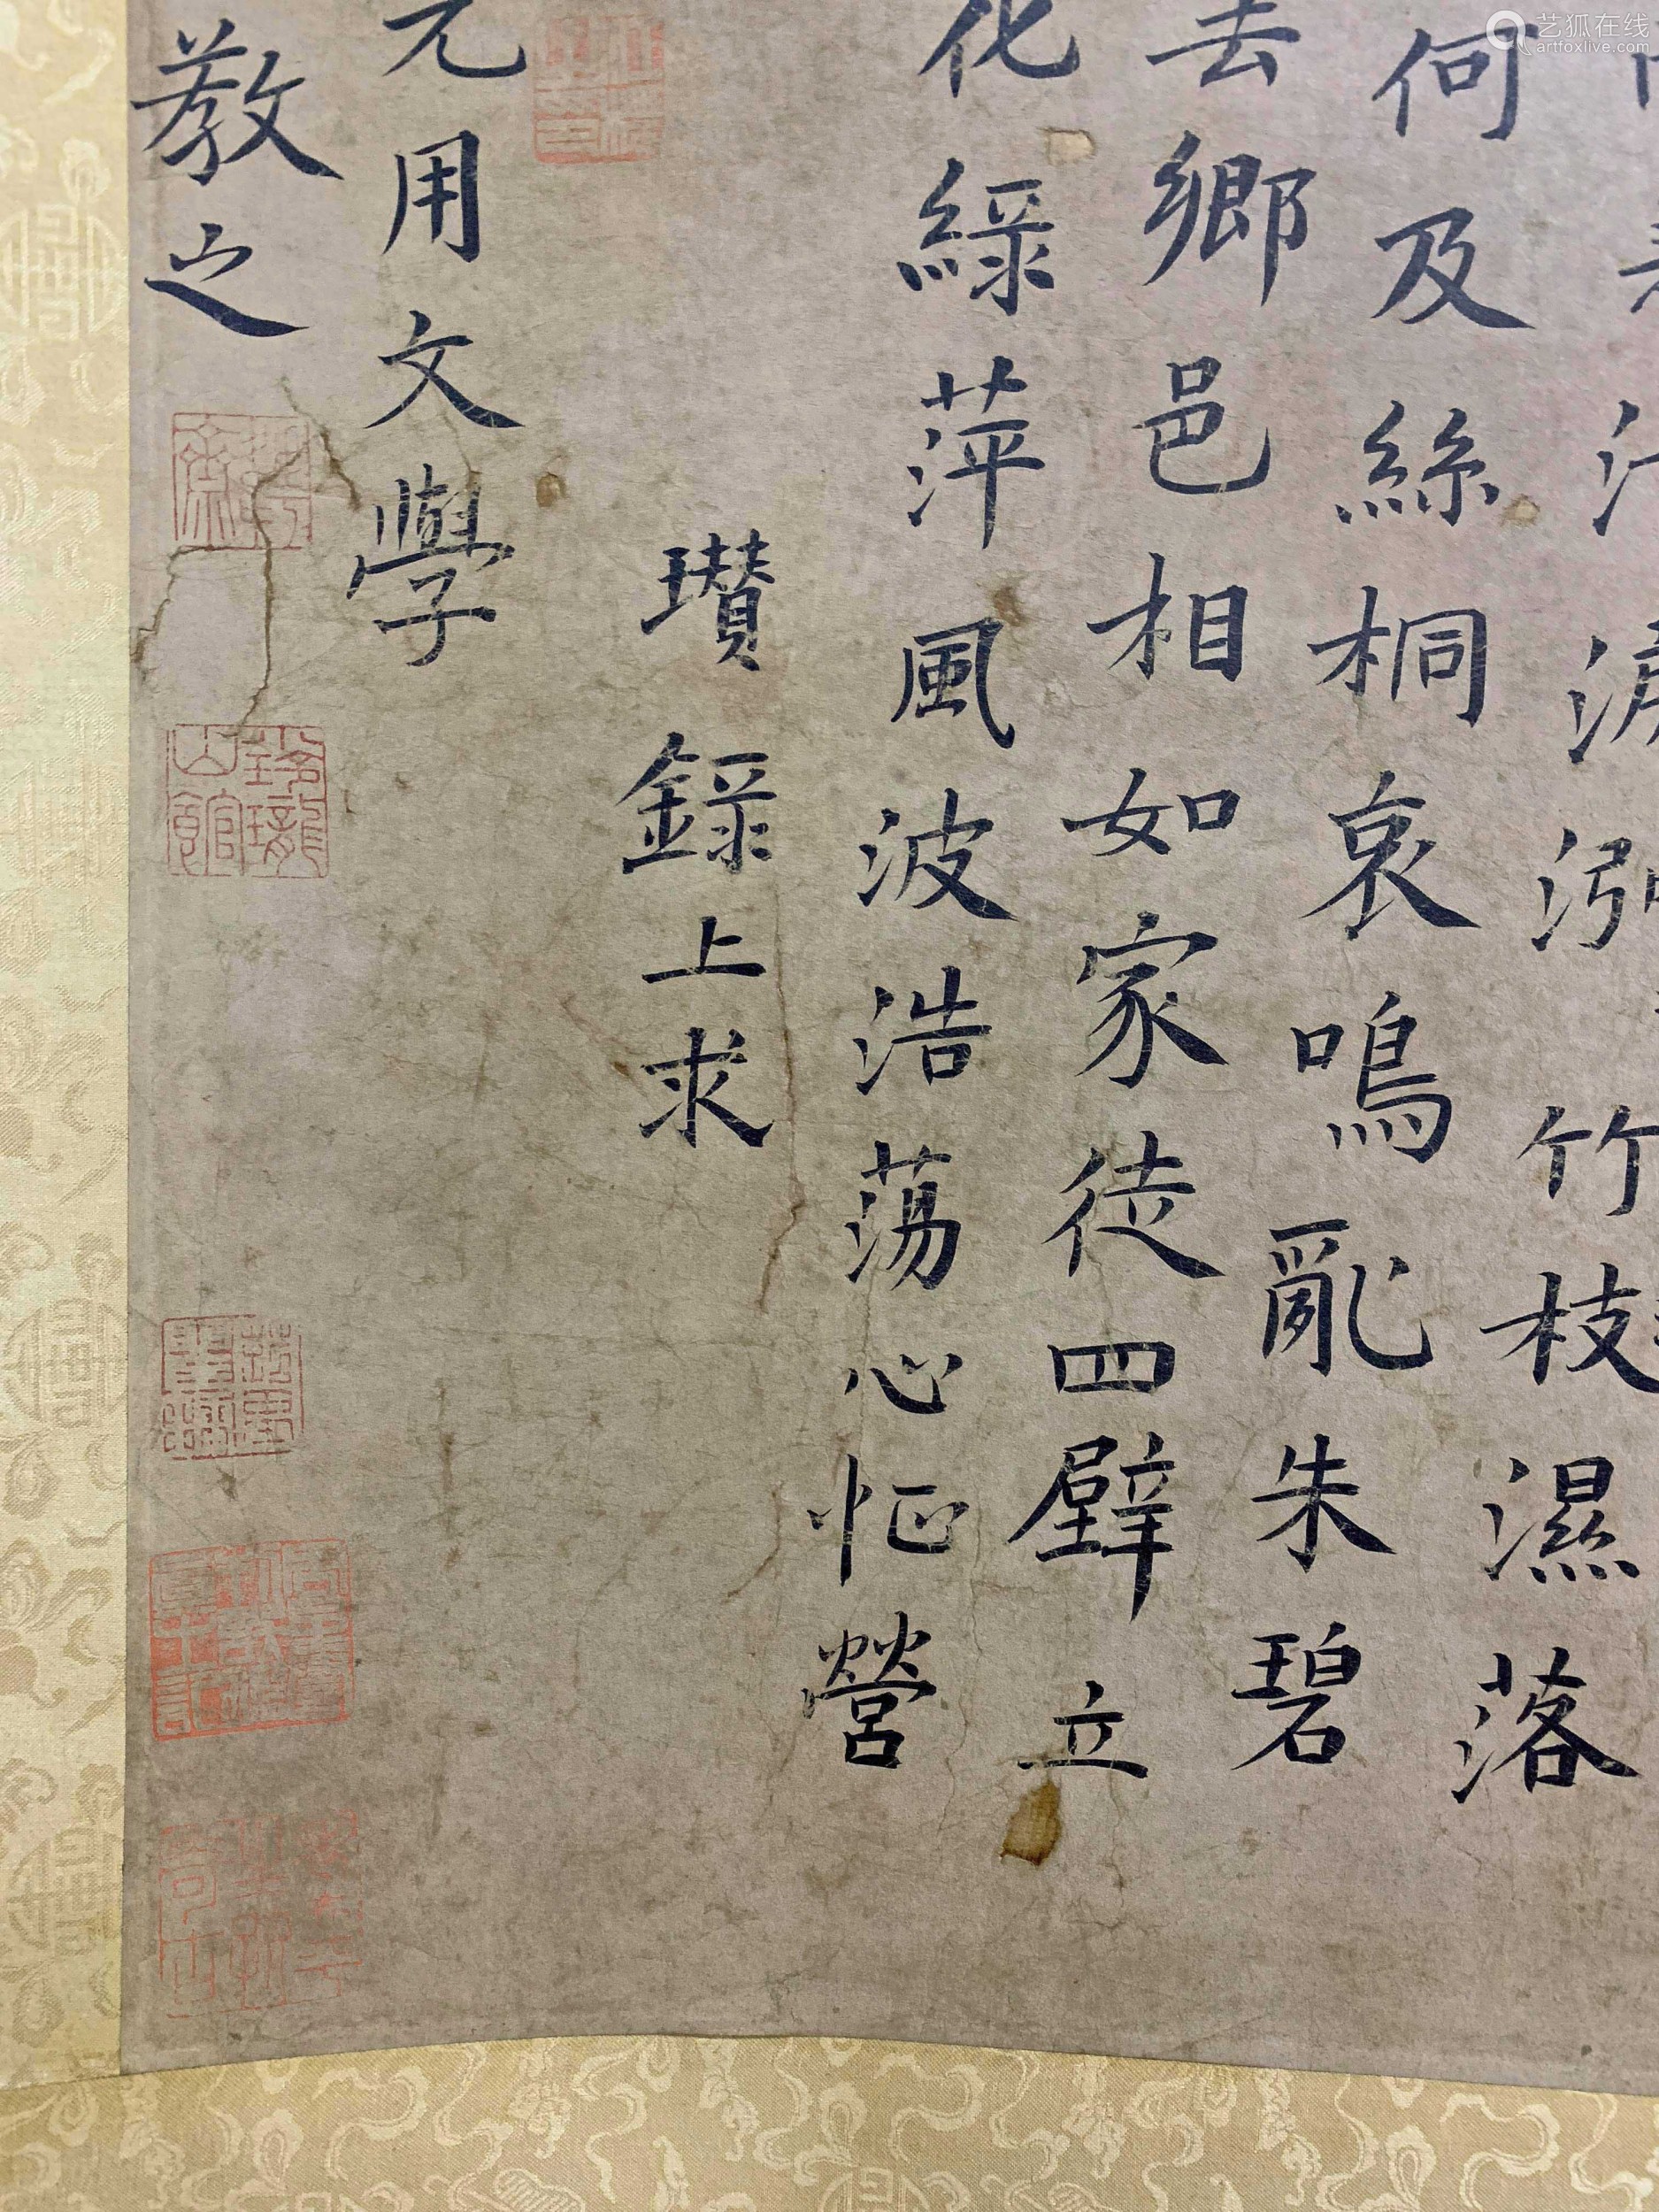 淚
竹枝濕落
何及絲桐哀鳴亂朱碧
去鄉邑相如家徒四壁立
化綠萍風波浩荡心怔營
瓚錄上求
元用文學
教之
玲瓏山館
艺狐在线
artfoxlive.com